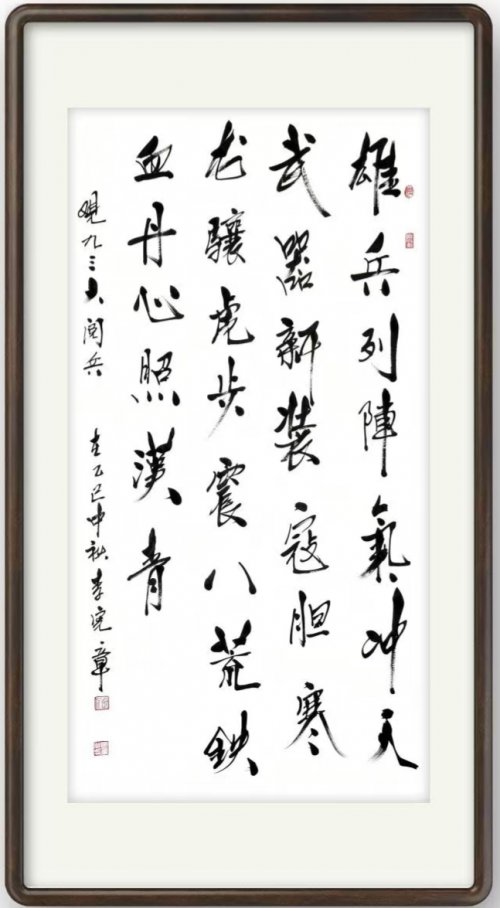 雄兵列陣氣冲天
武器新装寇胆寒
龙驤虎步震八荒鉄
血丹心照漢青
觀九三大阅兵 在乙巳仲秋李宪章